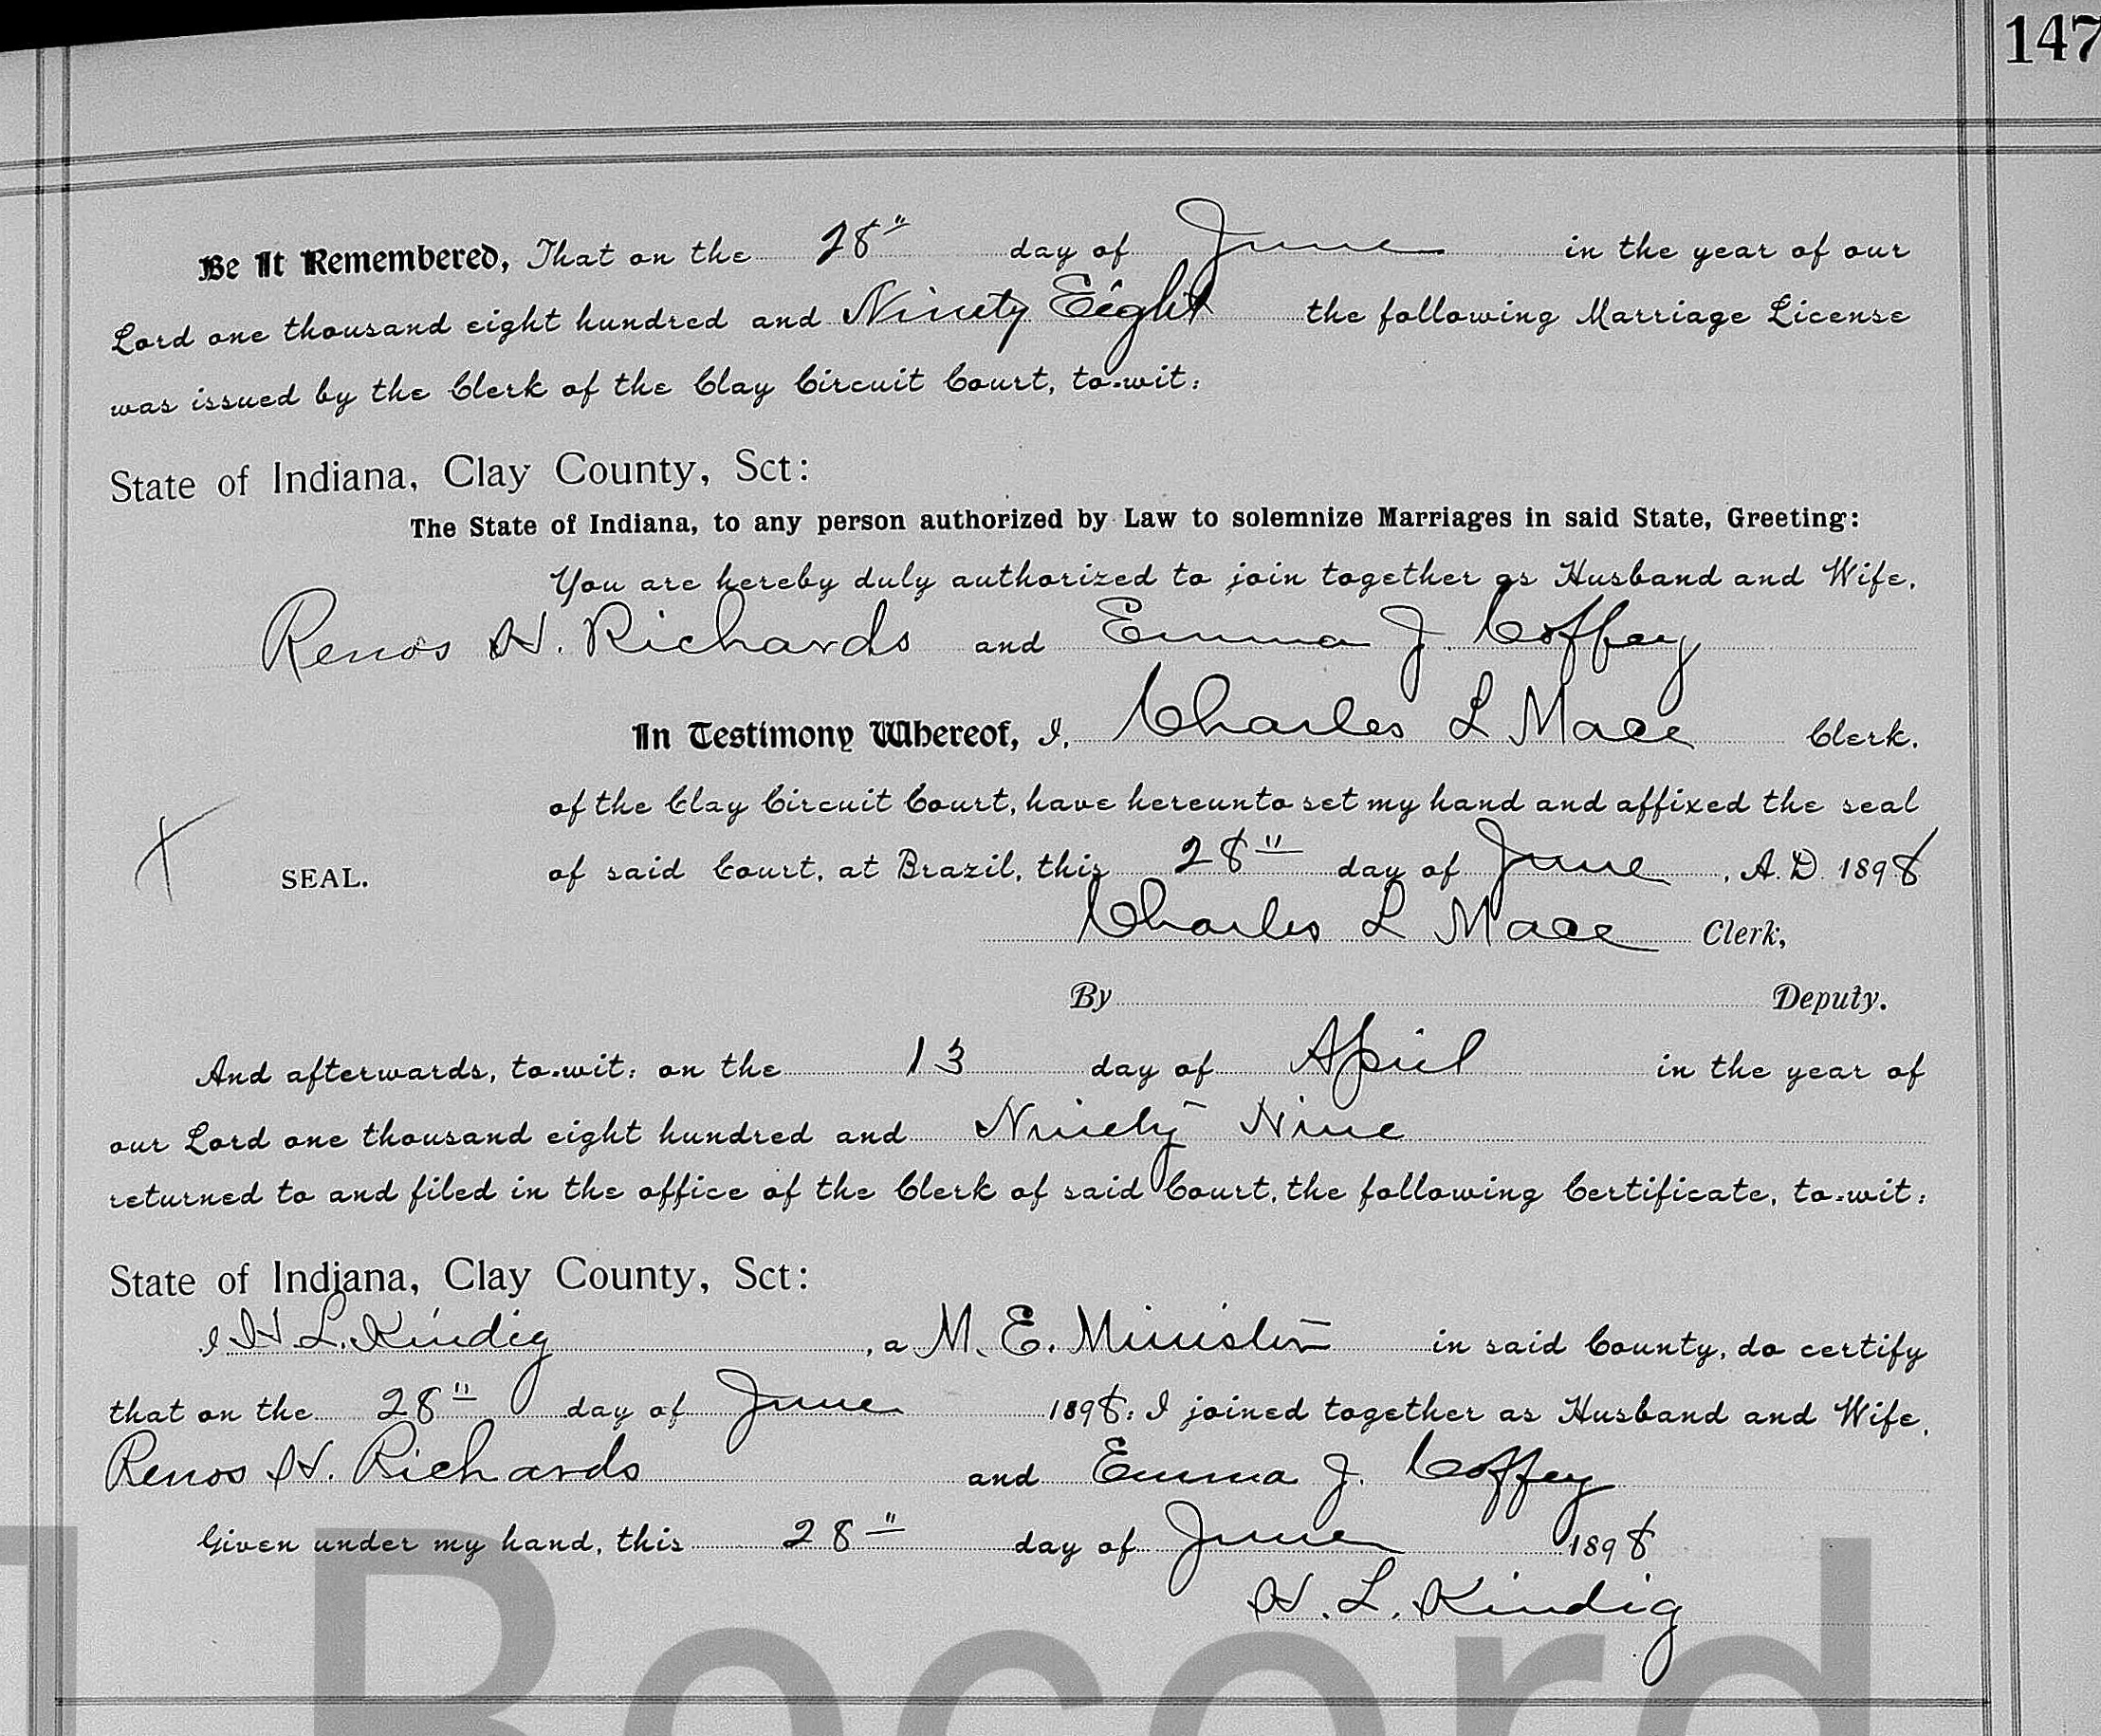 147
Be It Remembered, That on the 28" day of June in the year of our
Lord one thousand eight hundred and Ninety Eight the following Marriage License
was issued by the Clerk of the Clay Circuit Court, to-wit:
State of Indiana, Clay County, Sct:
The State of Indiana, to any person authorized by Law to solemnize Marriages in said State, Greeting:
You are hereby duly authorized to join together as Husband and Wife,
Renos H. Richards and Emma J. Coffey
In Testimony Whereof, I, Charles L Mace Clerk,
of the Clay Circuit Court, have hereunto set my hand and affixed the seal
SEAL. of said Court, at Brazil, this 28" day of June, A. D. 1898
Charles L Mace Clerk,
By Deputy.
And afterwards, to-wit: on the 13 day of April in the year of
our Lord one thousand eight hundred and Ninety Nine
returned to and filed in the office of the Clerk of said Court, the following Certificate, to-wit:
State of Indiana, Clay County, Sct:
I H. L. Kindig, a M. E. Minister in said County, do certify
that on the 28" day of June 1898: I joined together as Husband and Wife,
Renos H. Richards and Emma J. Coffey
Given under my hand, this 28" day of June 1898
H. L. Kindig
Record